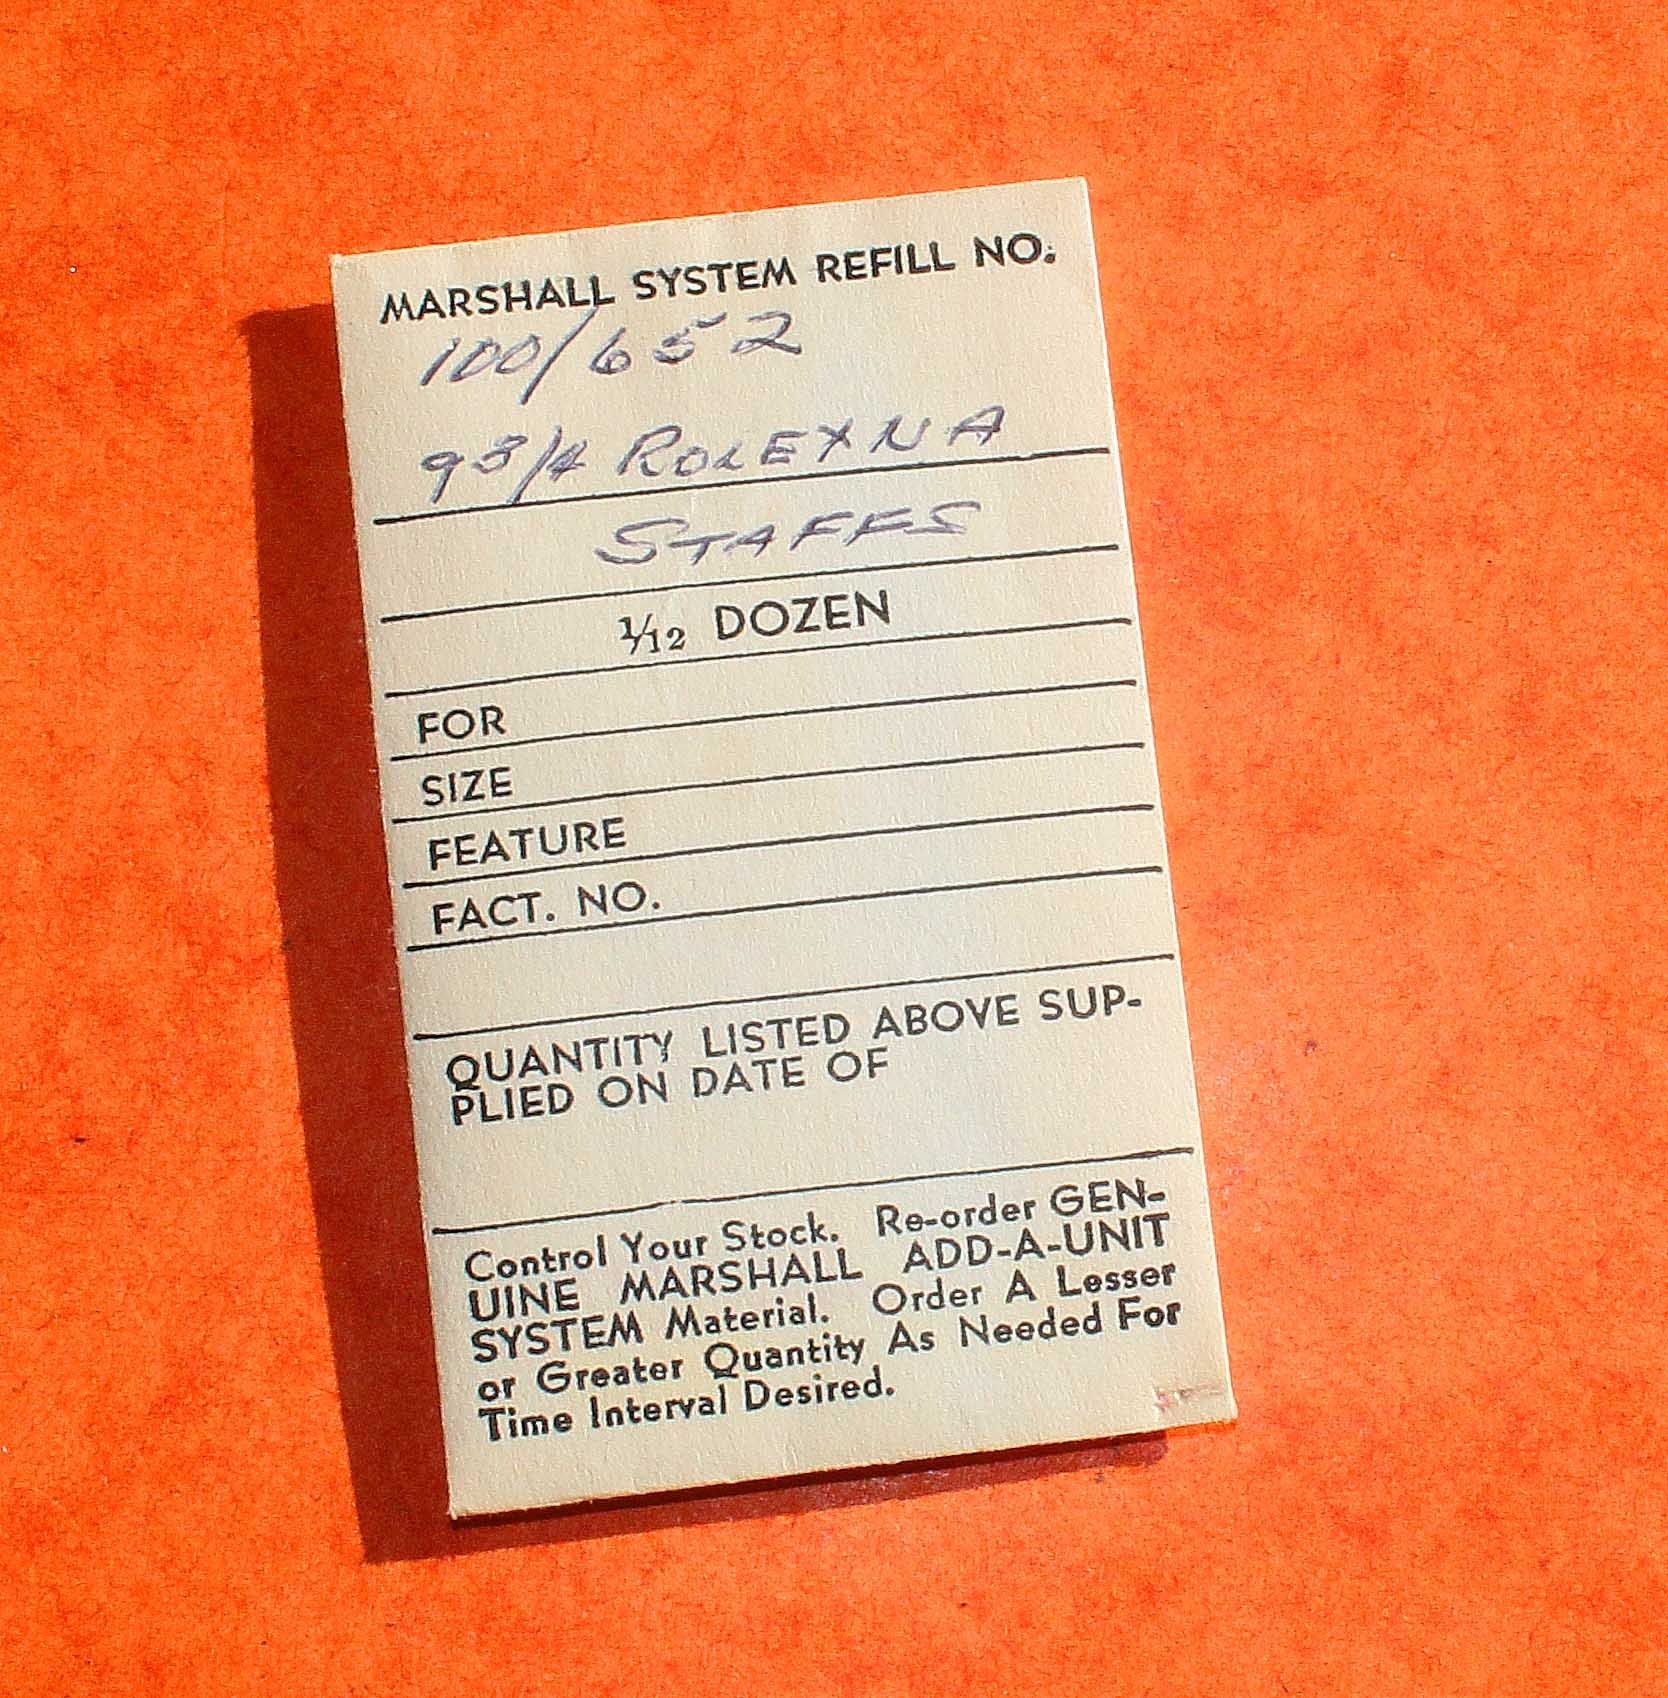 MARSHALL SYSTEM REFILL NO.
100/652
9 3/4 ROLEX N A
STAFFS
1/12 DOZEN
FOR
SIZE
FEATURE
FACT. NO.
QUANTITY LISTED ABOVE SUP-
PLIED ON DATE OF
Control Your Stock. Re-order GEN-
UINE MARSHALL ADD-A-UNIT
SYSTEM Material. Order A Lesser
or Greater Quantity As Needed For
Time Interval Desired.